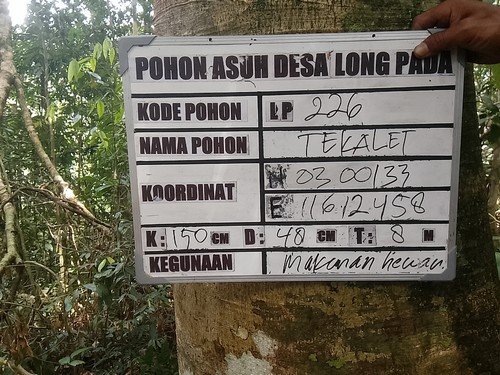 POHON ASUH DESA LONG PADA
KODE POHON LP 226
NAMA POHON TEKALET
KOORDINAT N 03 00133
E 116.12458
K: 150 CM D: 48 CM T: 8 M
KEGUNAAN Makanan hewan